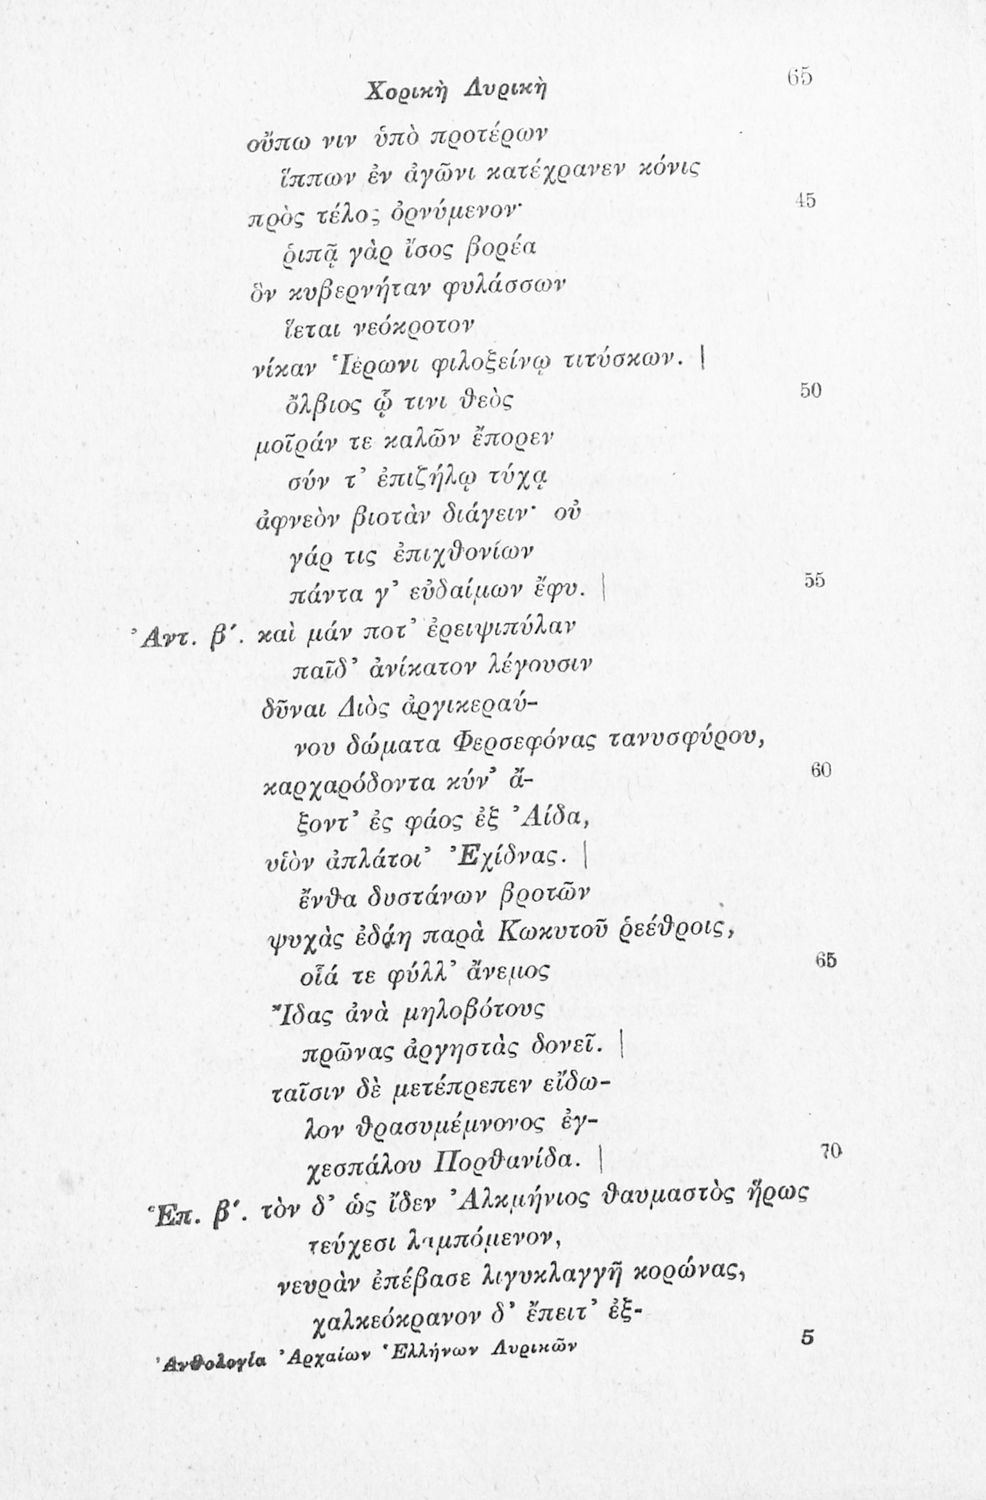 Χορικὴ Λυρικὴ 65
οὔπω νιν ὑπὸ προτέρων
ἵππων ἐν ἀγῶνι κατέχρανεν κόνις
πρὸς τέλος ὀρνύμενον· 45
ῥιπᾷ γὰρ ἴσος βορέα
ὃν κυβερνήταν φυλάσσων
ἵεται νεόκροτον
νίκαν Ἱέρωνι φιλοξείνῳ τιτύσκων. |
ὄλβιος ᾧ τινι θεὸς 50
μοῖράν τε καλῶν ἔπορεν
σύν τ᾽ ἐπιζήλῳ τύχᾳ
ἀφνεὸν βιοτὰν διάγειν· οὐ
γάρ τις ἐπιχθονίων
πάντα γ᾽ εὐδαίμων ἔφυ. | 55
Ἀντ. β΄. καὶ μάν ποτ᾽ ἐρειψιπύλαν
παῖδ᾽ ἀνίκατον λέγουσιν
δῦναι Διὸς ἀργικεραύ-
νου δώματα Φερσεφόνας τανυσφύρου,
καρχαρόδοντα κύν᾽ ἄ- 60
ξοντ᾽ ἐς φάος ἐξ Ἀίδα,
υἱὸν ἀπλάτοι᾽ Ἐχίδνας. |
ἔνθα δυστάνων βροτῶν
ψυχὰς ἐδάη παρὰ Κωκυτοῦ ῥεέθροις,
οἷά τε φύλλ᾽ ἄνεμος 65
Ἴδας ἀνὰ μηλοβότους
πρῶνας ἀργηστὰς δονεῖ. |
ταῖσιν δὲ μετέπρεπεν εἴδω-
λον θρασυμέμνονος ἐγ-
χεσπάλου Πορθανίδα. | 70
Ἐπ. β΄. τὸν δ᾽ ὡς ἴδεν Ἀλκμήνιος θαυμαστὸς ἥρως
τεύχεσι λαμπόμενον,
νευρὰν ἐπέβασε λιγυκλαγγῆ κορώνας,
χαλκεόκρανον δ᾽ ἔπειτ᾽ ἐξ-
Ἀνθολογία Ἀρχαίων Ἑλλήνων Λυρικῶν 5